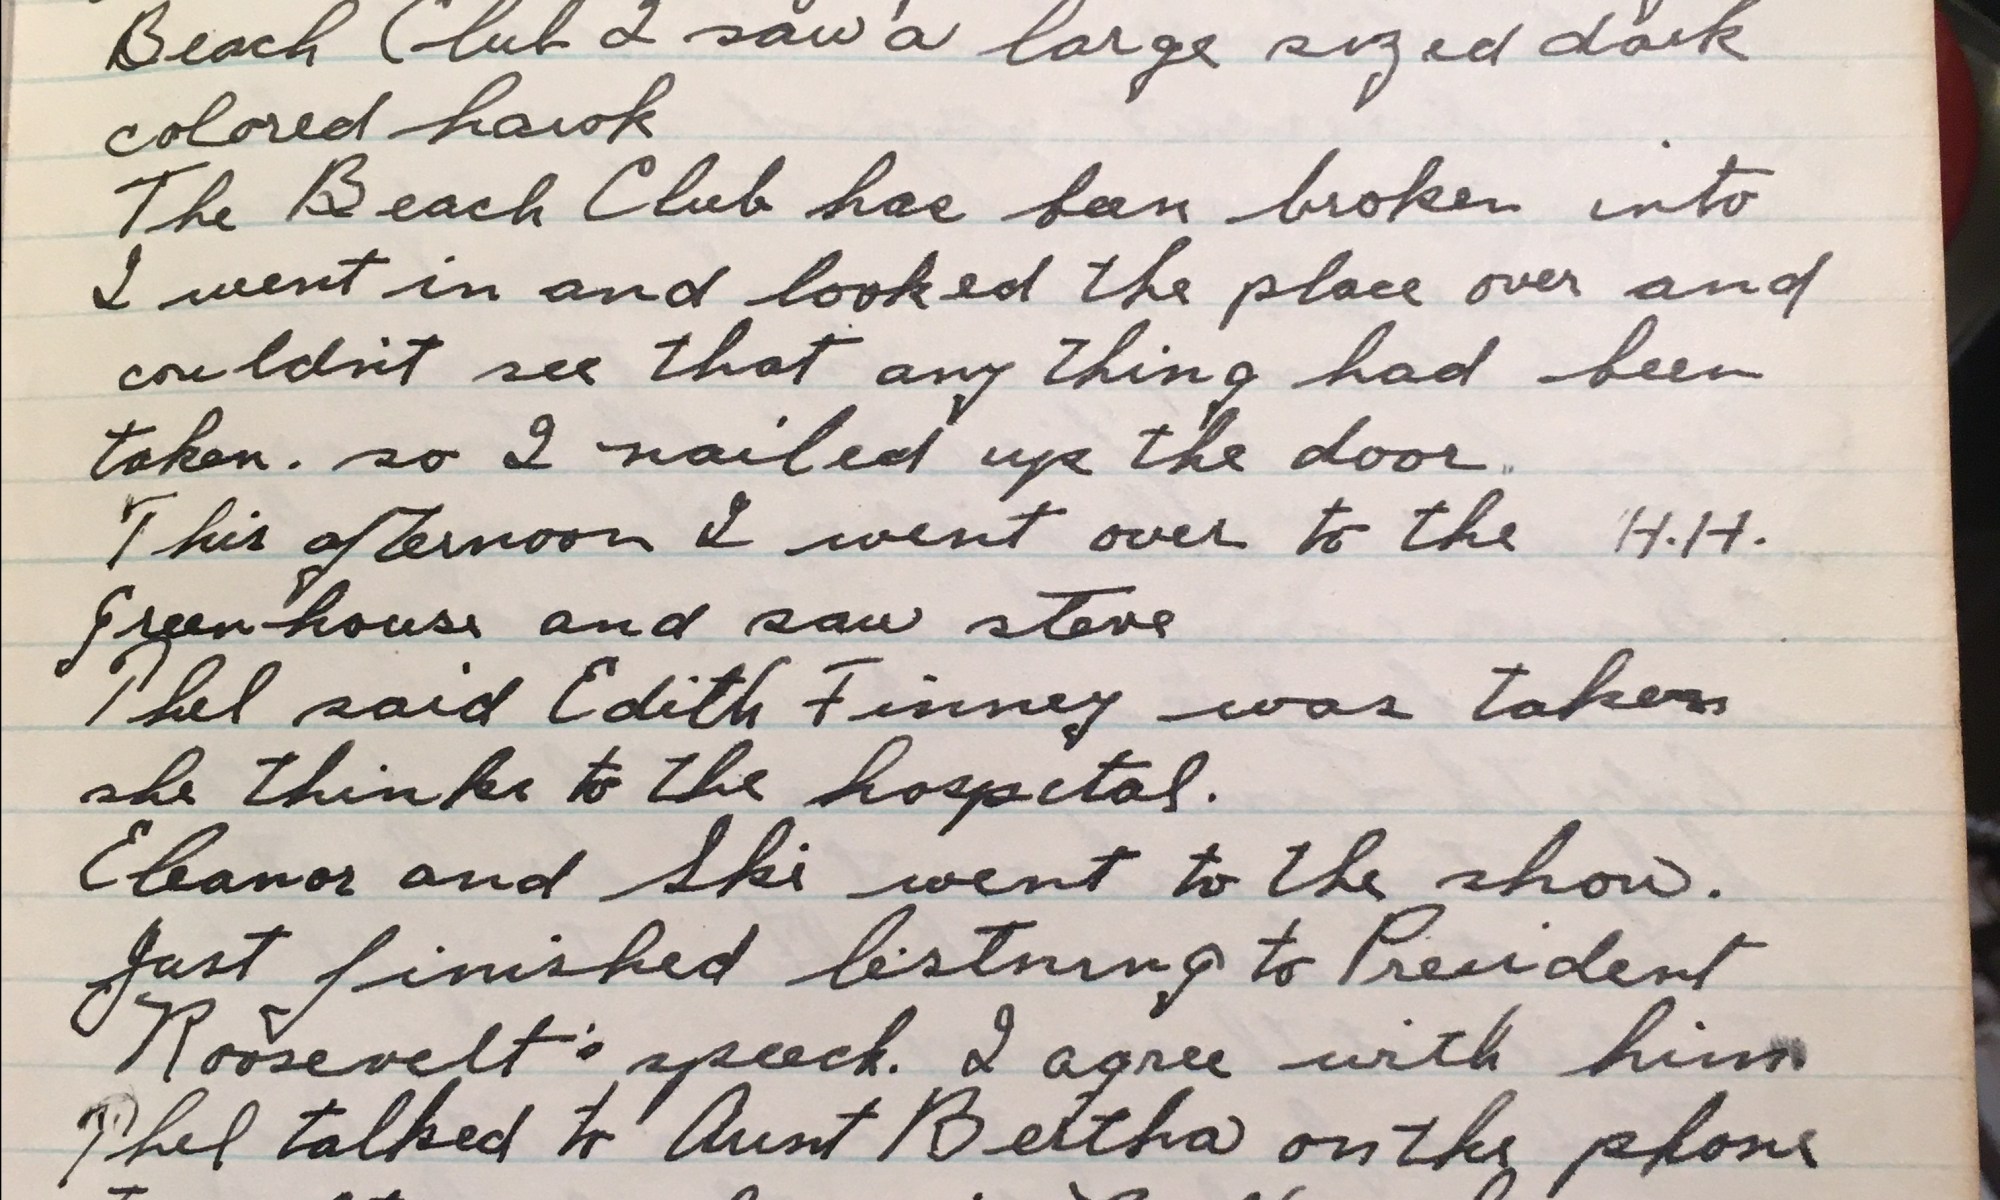 Beach Club I saw a large sized dark
colored hawk
The Beach Club has been broken into
I went in and looked the place over and
couldn't see that any thing had been
taken. so I nailed up the door.
This afternoon I went over to the H.H.
Greenhouse and saw steve
Thel said Edith Finney was taken
she thinks to the hospital.
Eleanor and Ski went to the show.
Just finished listning to President
Roosevelt's speech. I agree with him
Thel talked to Aunt Bertha on the phone